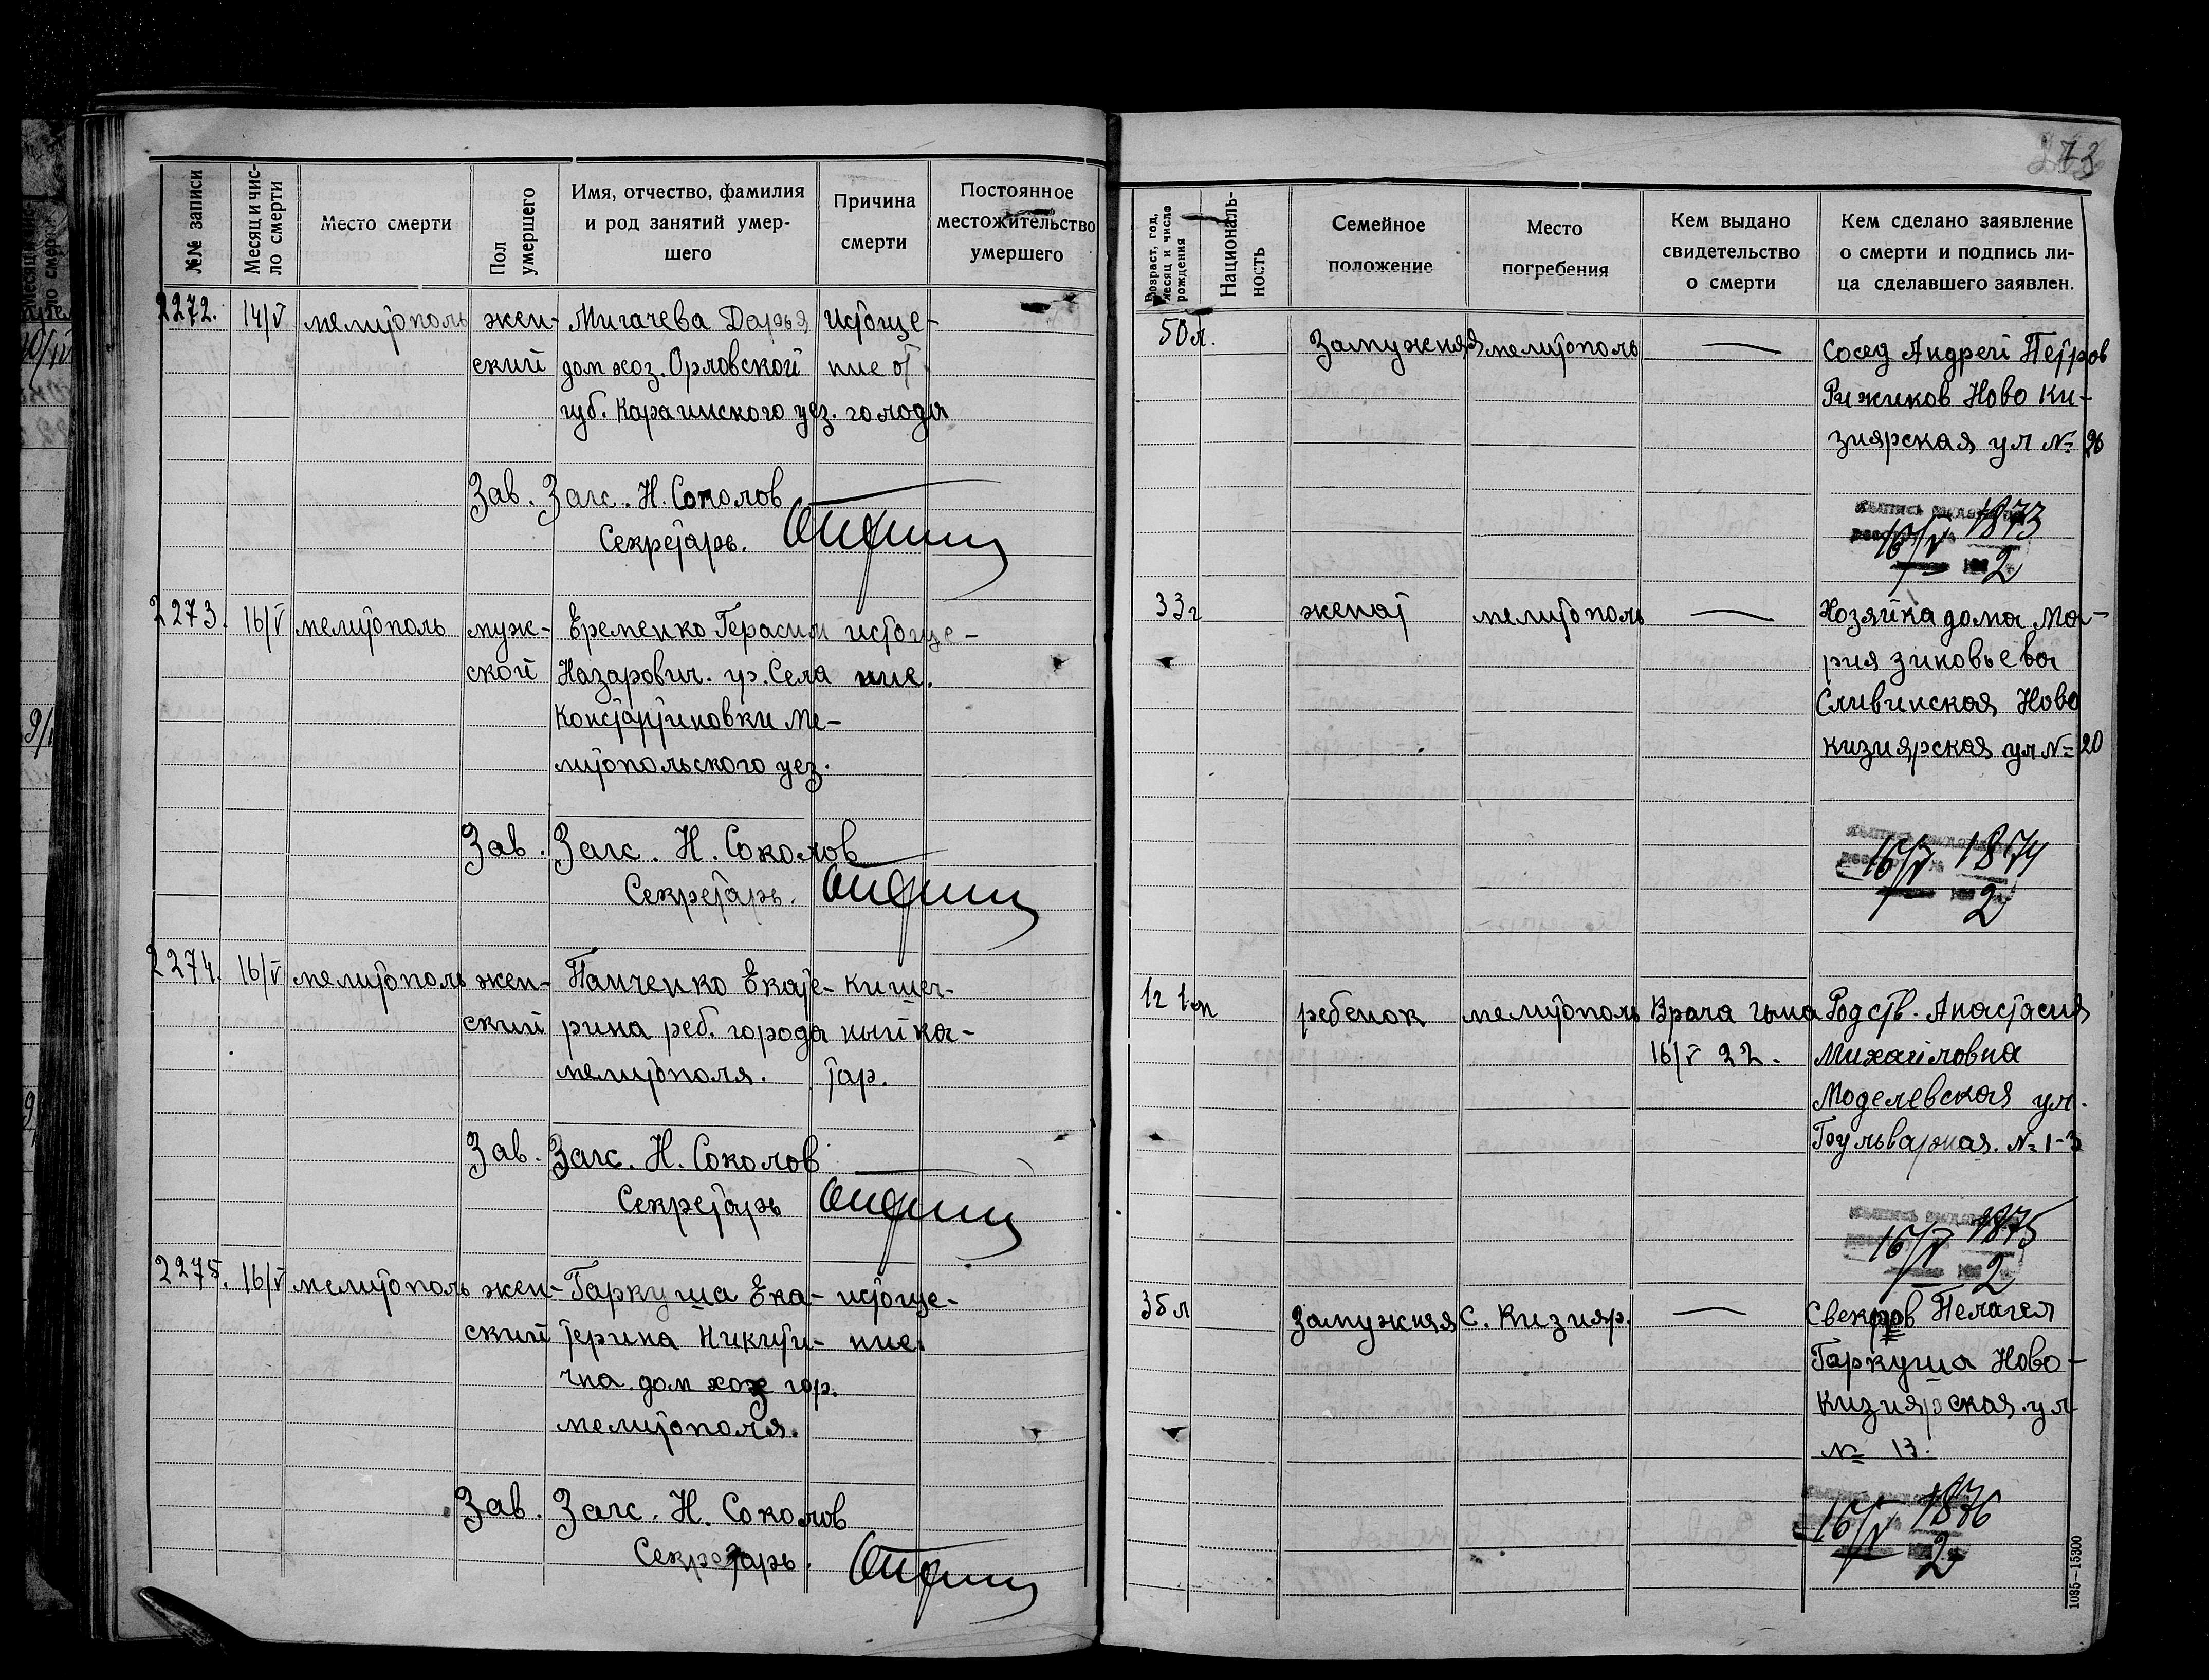 №№ записи
Месяц и чис-
ло смерти
Место смерти
Пол
умершего
Имя, отчество, фамилия
и род занятий умер-
шего
Причина
смерти
Постоянное
местожительство
умершего
2272.
14/V
мелитополь
жен-
ский
Мигачева Дарья
дом хоз. Орловской
губ. Караинского уез.
истоще-
ние от
голода
Зав. Загс. Н. Соколов
Секретарь.
2273.
16/V
мелитополь
муж-
ской
Еременко Герасим
Назарович. гр. Села
Константиновки Ме-
литопольского уез.
истоще-
ние.
Зав. Загс. Н. Соколов
Секретарь.
2274.
16/V
мелитополь
жен-
ский
Панченко Екате-
рина реб. города
мелитополя.
кишеч-
ный ка-
тар.
Зав. Загс. Н. Соколов
Секретарь
2275.
16/V
мелитополь
жен-
ский
Гаркуша Ека-
терина Никити-
чна дом хоз гор.
мелитополя.
истоще-
ние.
Зав. Загс. Н. Соколов
Секретарь.
73
Возраст, год,
месяц и число
рождения
Националь-
ность
Семейное
положение
Место
погребения
Кем выдано
свидетельство
о смерти
Кем сделано заявление
о смерти и подпись ли-
ца сделавшего заявлен.
50 л.
Замужняя
мелитополь
—
Сосед Андрей Петров
Рижиков Ново Ки-
зиярская ул № 26
16/V 1873
2
33 г
женат
мелитополь
—
Хозяйка дома Ма-
рия Зиновьева
Сливинская Ново
кизиярская ул № 20
16/V 1874
2
1 г 1 м
ребенок
мелитополь
Врача
16/V 22.
Родств. Анастасия
Михайловна
Моделевская ул.
Бульварная. № 1-3
16/V 1875
2
35 л
Замужняя
С. Кизияр.
—
Свекров Пелагея
Гаркуша Ново-
Кизиярская ул
№ 13.
16/V 1876
2
1035—15300